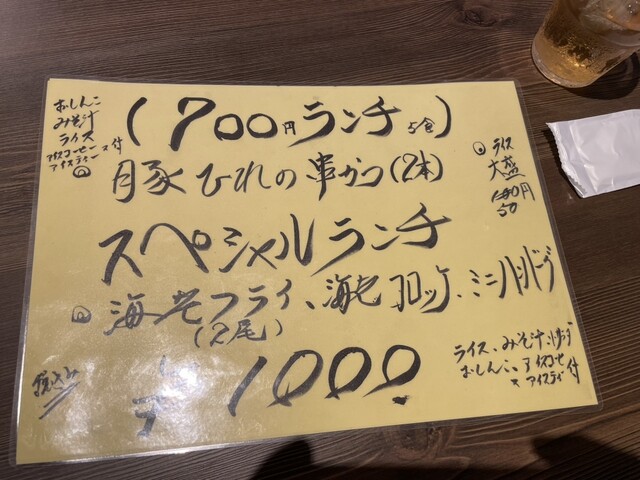 (700円ランチ 5食)
おしんこ
みそ汁
ライス
アイスコーヒー
アイスティー
ス付
豚ひれの串かつ(2本)
ライス
大盛
100円
50
スペシャルランチ
海老フライ、海老コロッケ、ミニハンバーグ
(2尾)
税込み
¥1000
ライス、みそ汁
おしんこ、アイスコーヒー
ス アイスティ 付